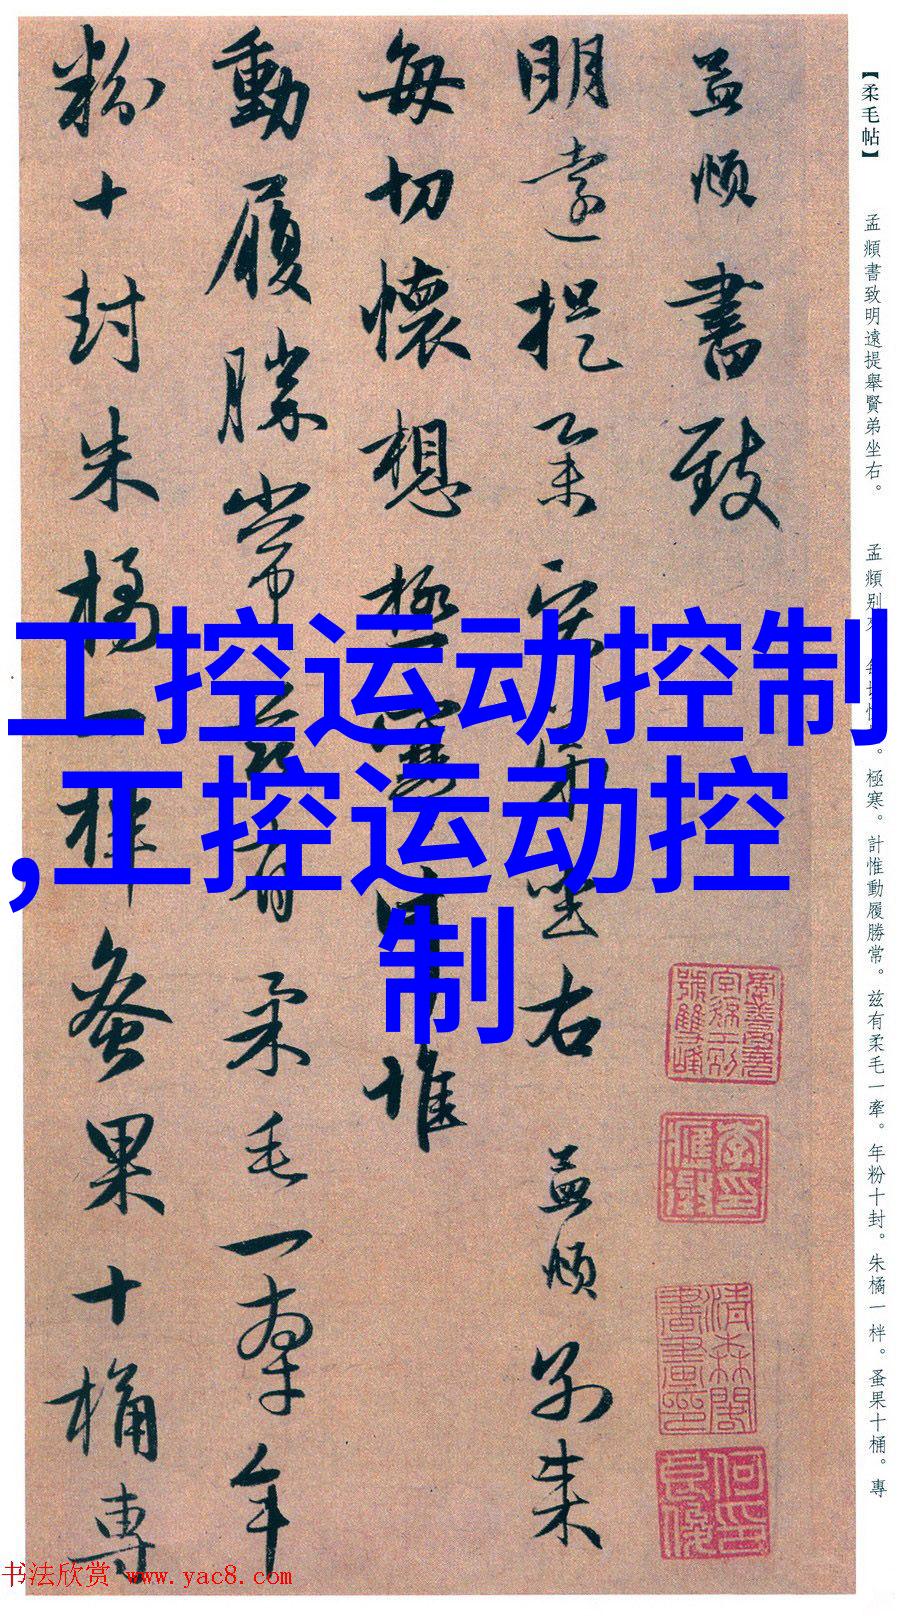 【柔毛帖】
孟頫書致明遠提舉賢弟坐右。
孟頫别
極寒。計惟動履勝常。兹有柔毛一牽。年粉十封。朱橘一样。蚤果十桶。專
孟頫書致
明遠提舉賢弟坐右 孟頫别來
每切懷想極寒計惟
動履勝常兹有柔毛一牽年
粉十封朱橘一样蚤果十桶專
工控运动控制
,工控运动控
制
书法欣赏 www.yac8.com